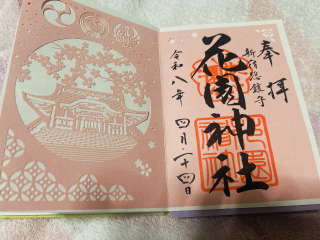 奉拝
新宿総鎮守
花園神社
令和八年 四月二十四日